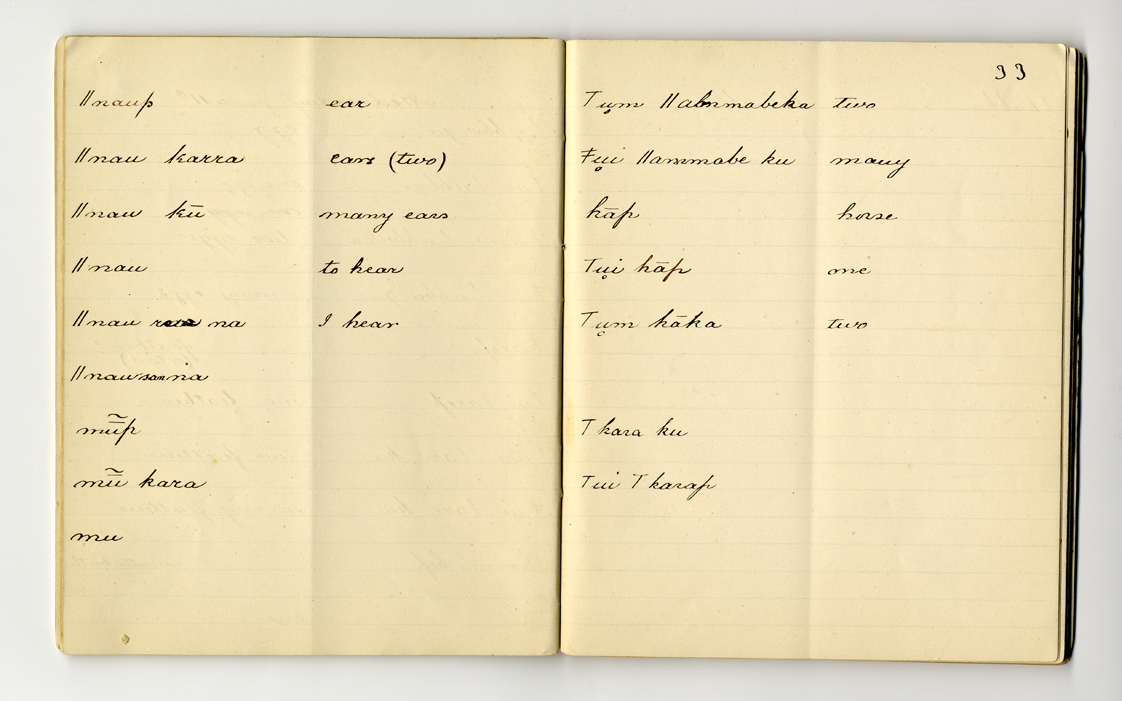 ǁnaup ear
ǁnau karra ears (two)
ǁnau kū many ears
ǁnau to hear
ǁnau na I hear
ǁnausanna
mū̃p
mū̃ kara
mu
33
Tụm two
Ŧụi ǁammabe ku many
hāp horse
Tụi hāp one
Tụm hāka two
T kara ku
Tui T karap